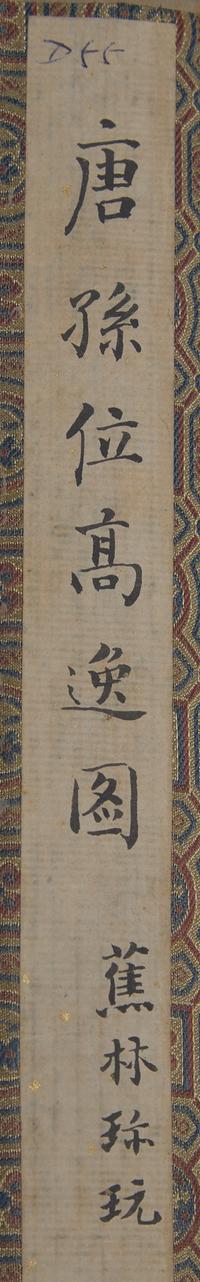 D55
唐孫位高逸圖
蕉林珎玩